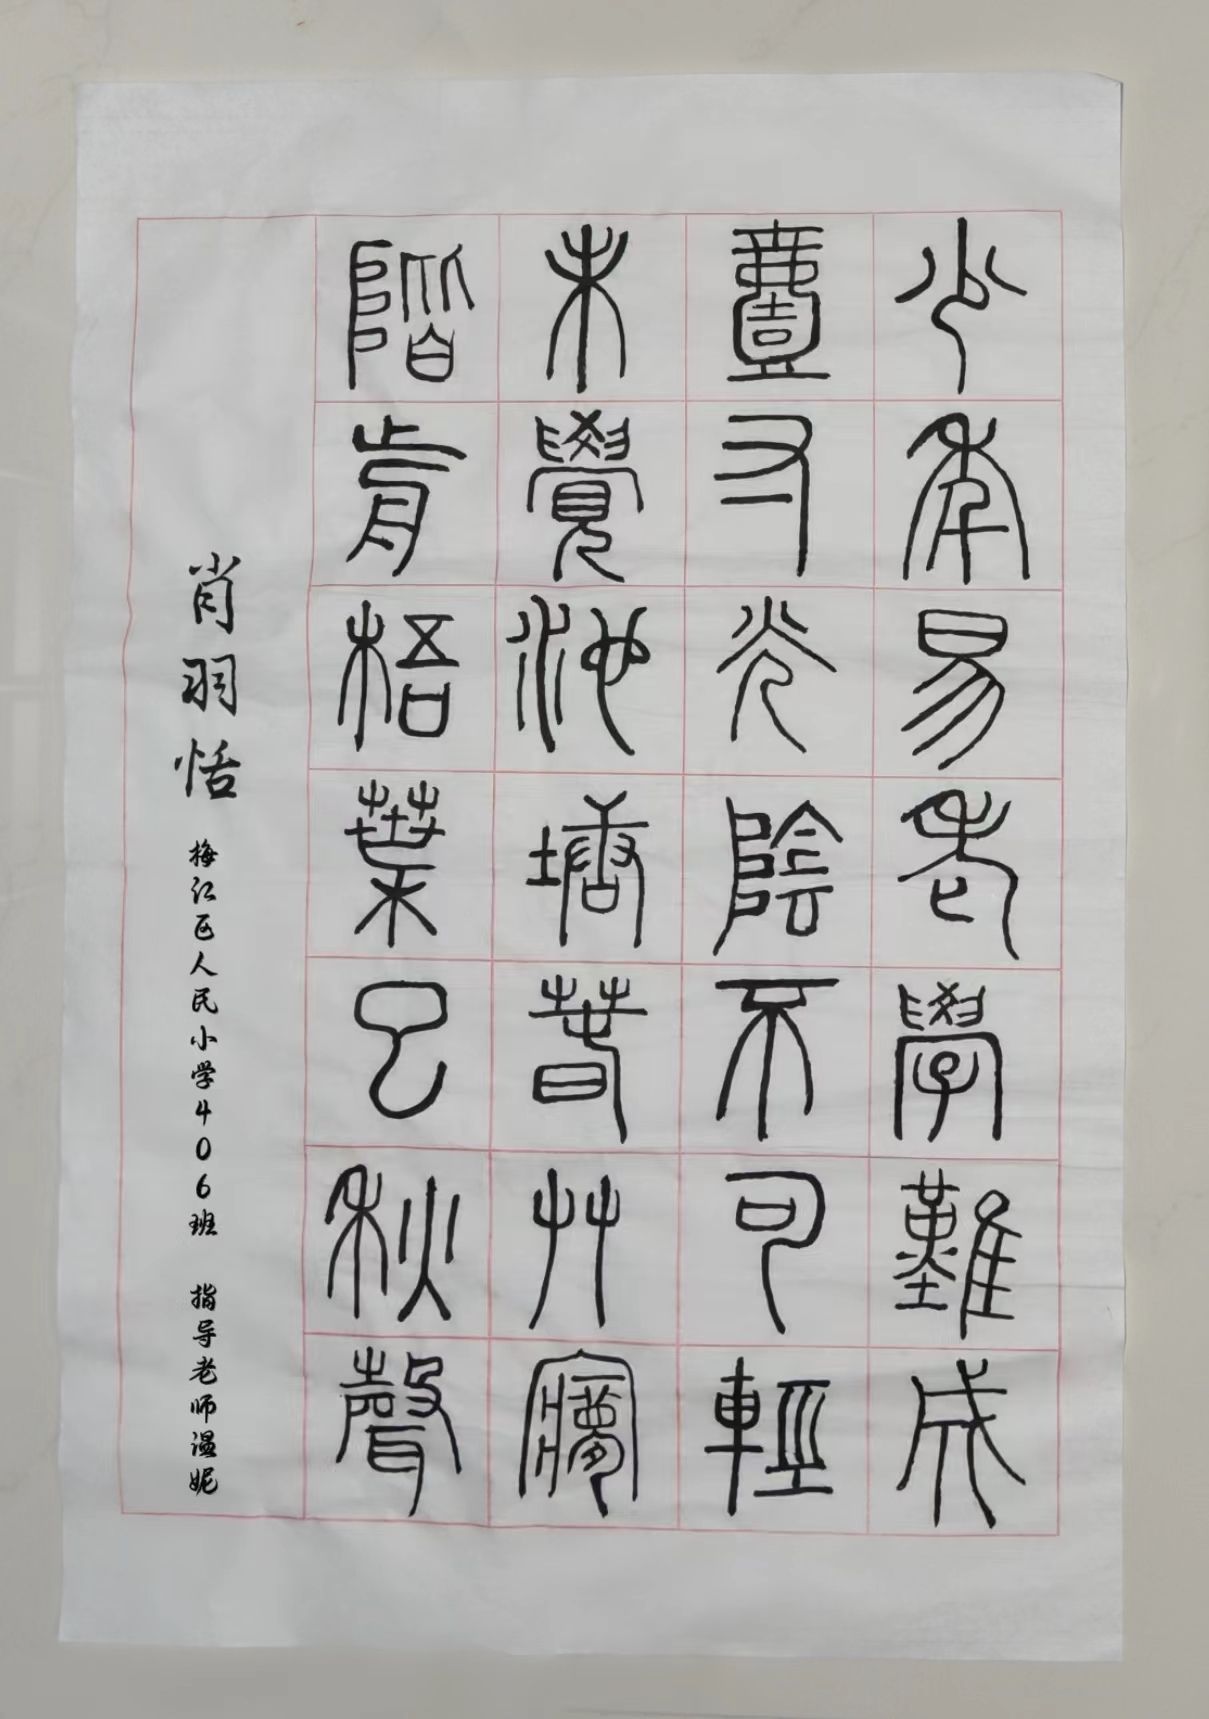 少年易老學難成
壹寸光陰不可輕
未覺池塘春艸夢
階前梧葉已秋聲
肖羽恬 梅江区人民小学406班 指导老师温妮